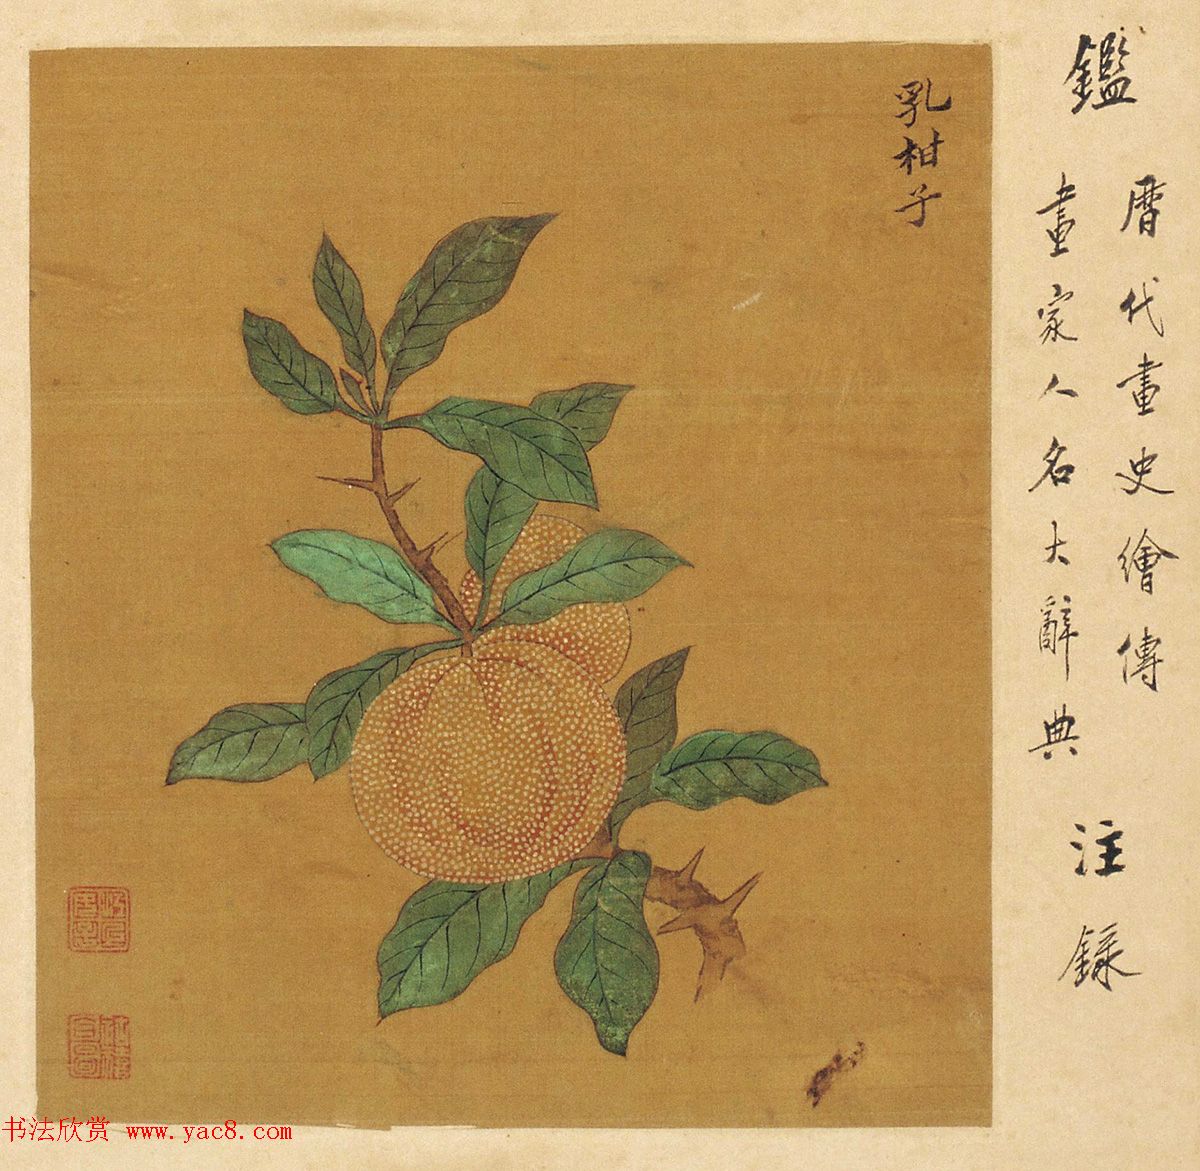 鑑
曆代畫史繪傳
畫家人名大辭典
注
錄
乳柑子
书法欣赏 www.yac8.com